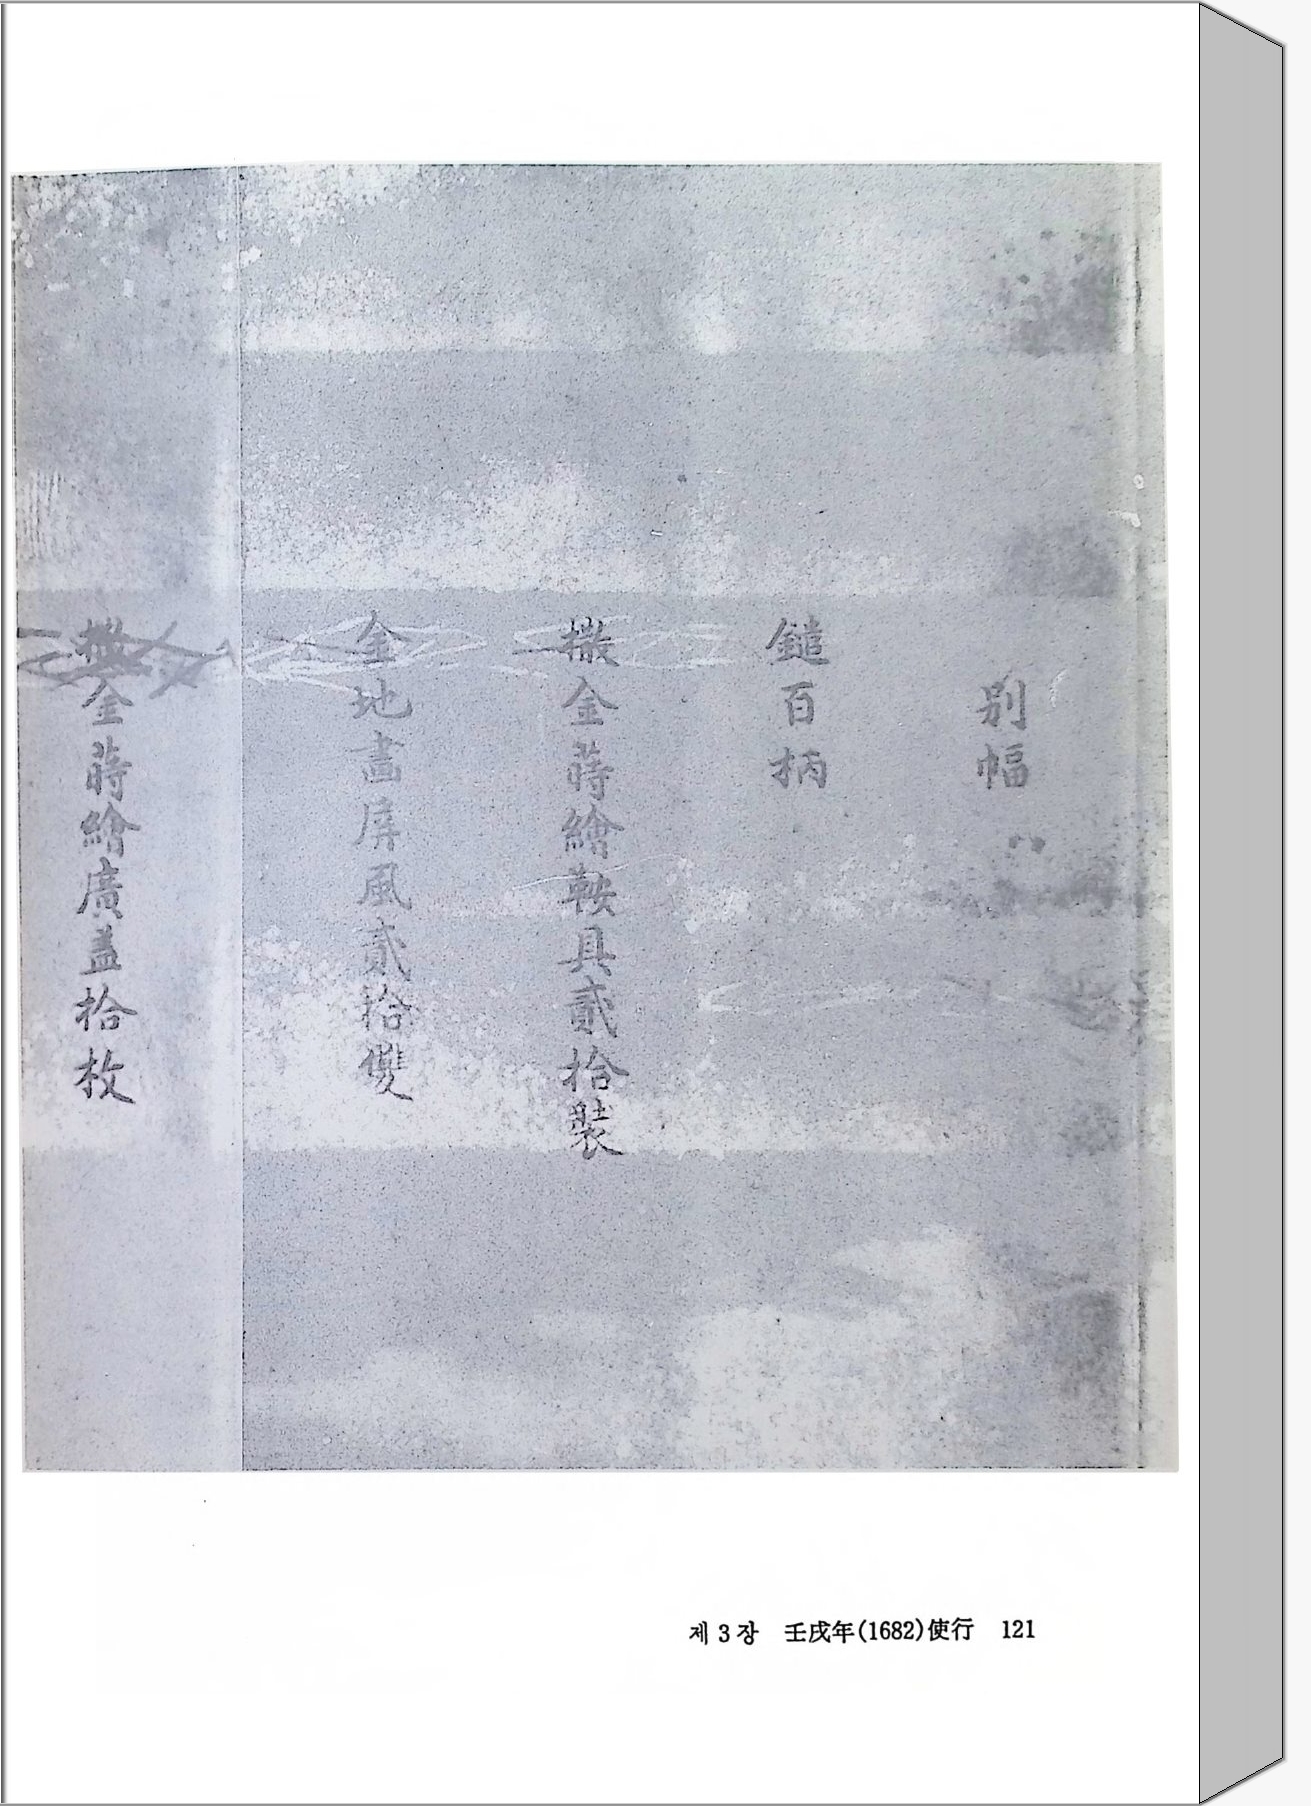 別幅
鎚百柄
撒金蒔繪鞍具貳拾裝
金地畵屛風貳拾雙
撒金蒔繪廣盖拾枚
제 3 장 壬戌年(1682)使行 121